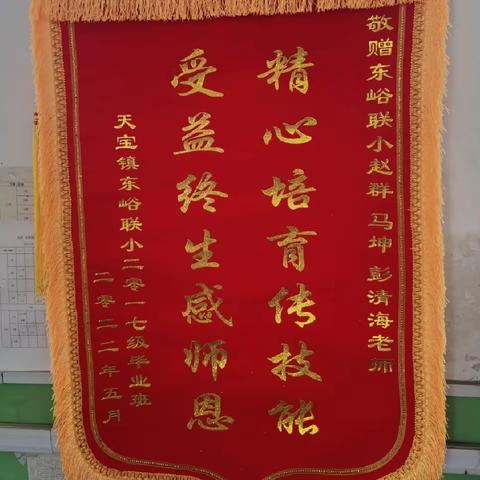 敬赠东峪联小赵群 马坤 彭清海老师
精心培育传技能
受益终生感师恩
天宝镇东峪联小二零一七级毕业班
二零二二年五月